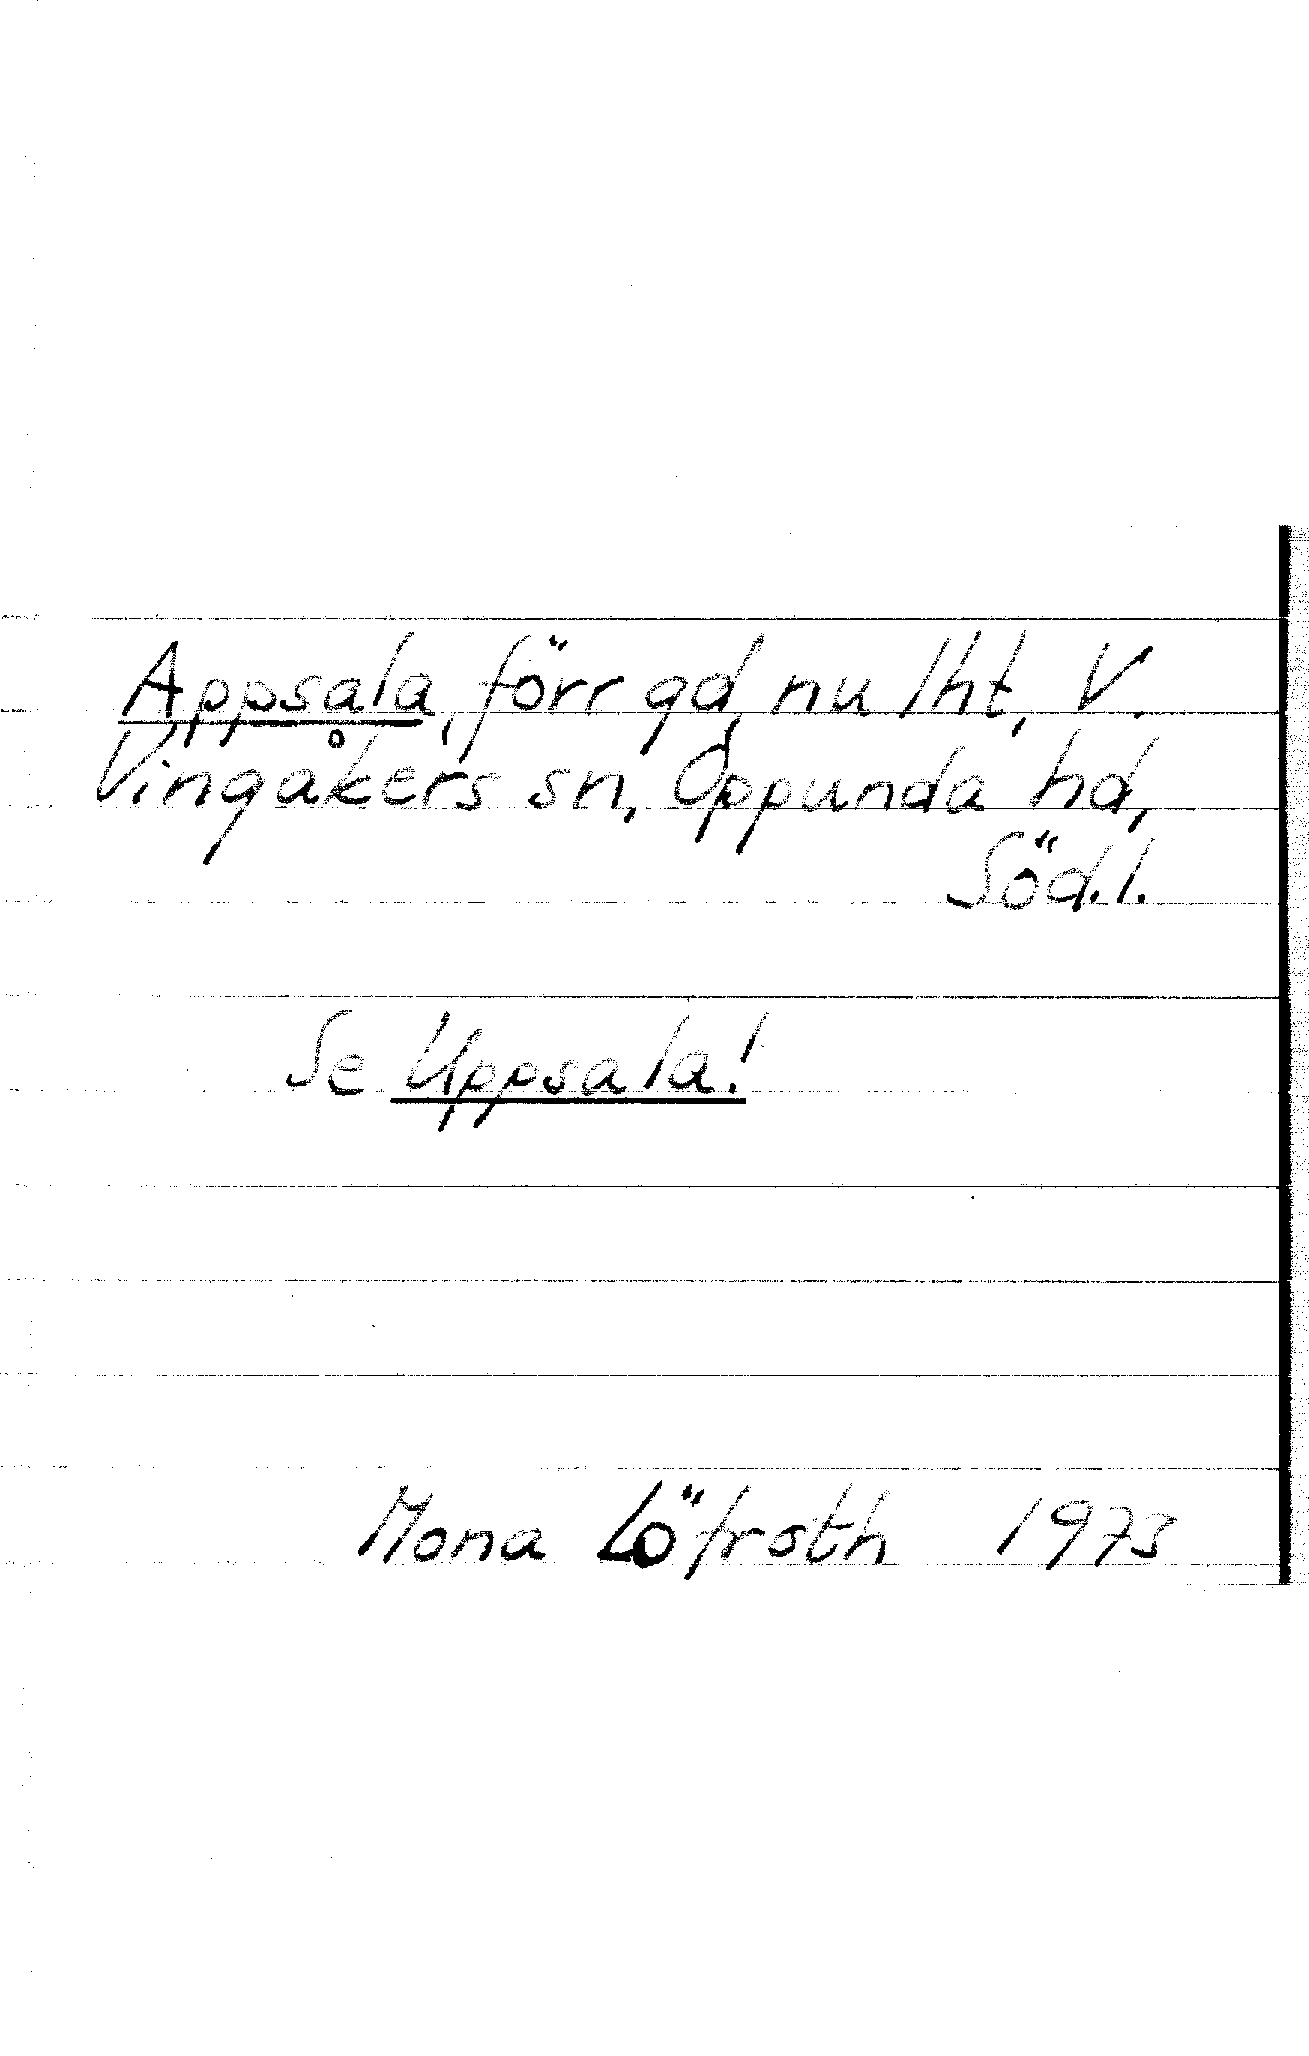 Appsala, förr gd, nu lht, V.
Vingåkers sn, Oppunda hd,
Söd.l.
Se Uppsala!
Mona Löfroth 1973